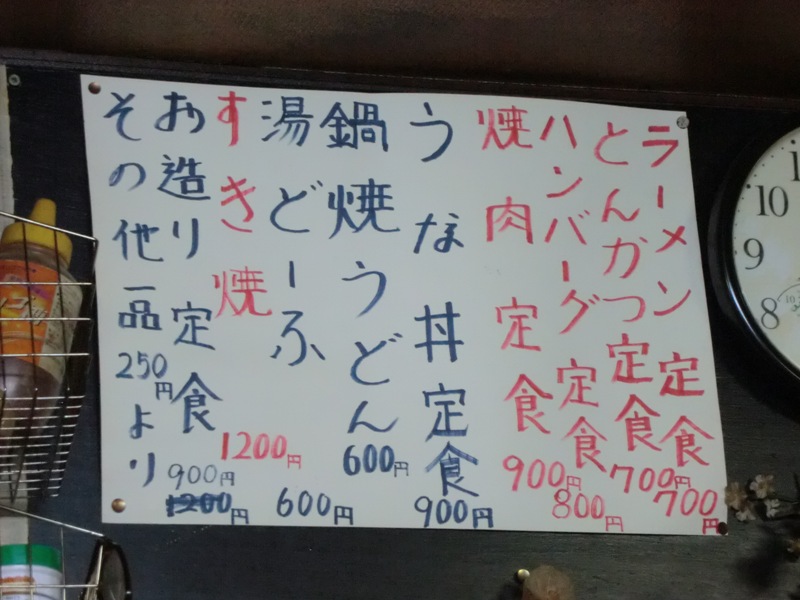 ラーメン定食 700円
とんかつ定食 700円
ハンバーグ定食 800円
焼肉定食 900円
うな丼定食 900円
鍋焼うどん 600円
湯どーふ 600円
すき焼 1200円
お造り定食 900円 1200円
その他一品250円より
1
10
9
8